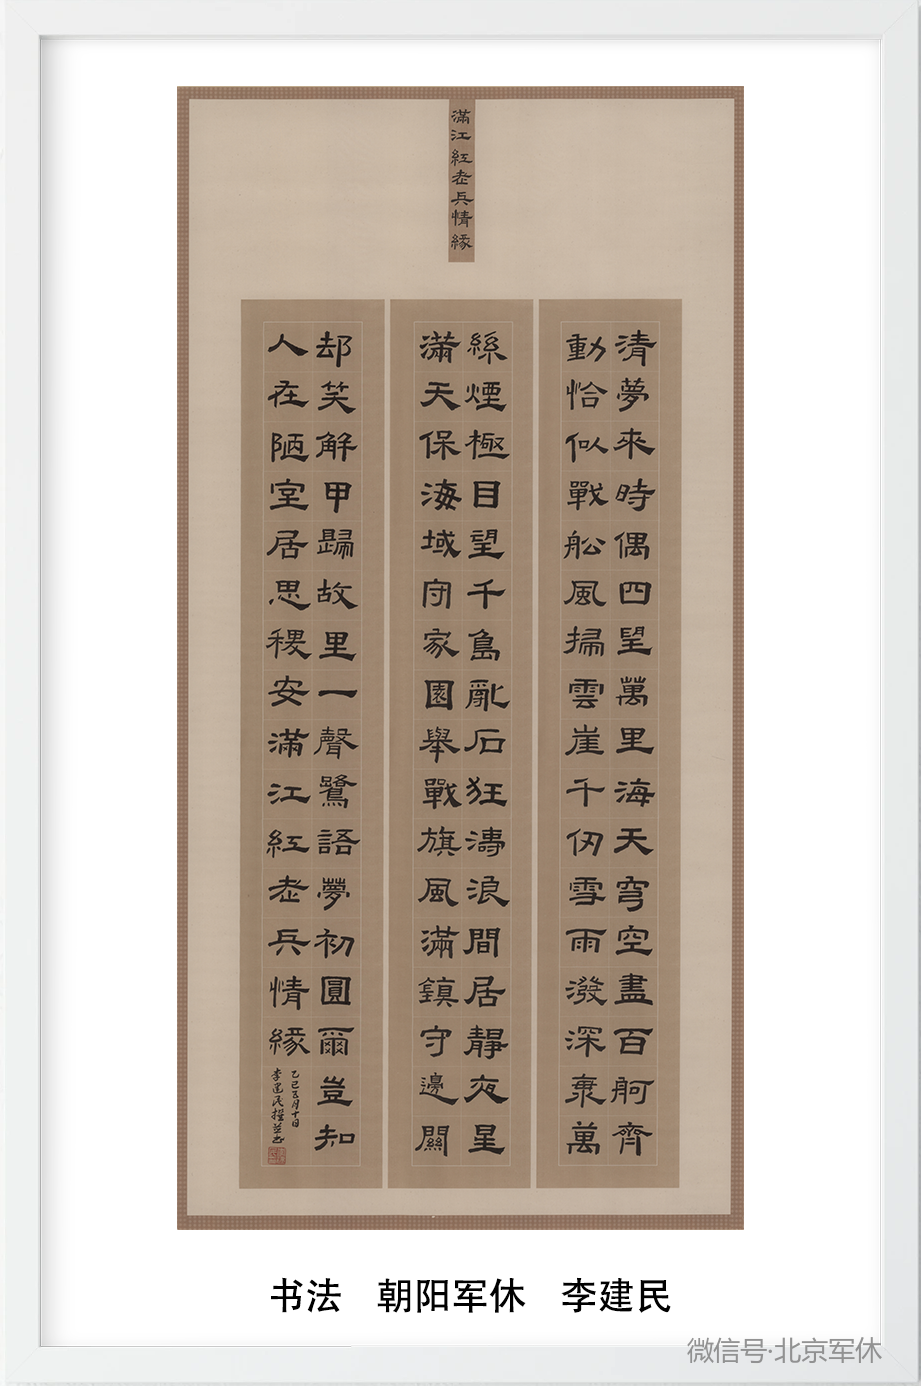 滿江紅老兵情緣
清夢來時偶四望萬里海天穹空盡百舸齊
動恰似戰舩風掃雲崖千仞雪雨潑深衷萬
絲煙極目望千島亂石狂濤浪間居靜夜星
滿天保海域守家園舉戰旗風滿鎮守邊關
却笑解甲歸故里一聲鷺語夢初圓爾豈知
人在陋室居思稷安滿江紅老兵情緣
乙巳五月十日
李建民撰並书
书法 朝阳军休 李建民
微信号·北京军休